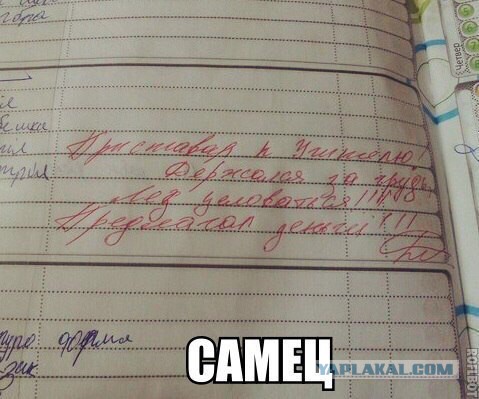 гора
Четверг
Приставал к Учителю,
Держался за грудь,
Лез целоваться!!!!
Предлагал деньги!!!
форма
зик
САМЕЦ
YAPLAKAL.COM